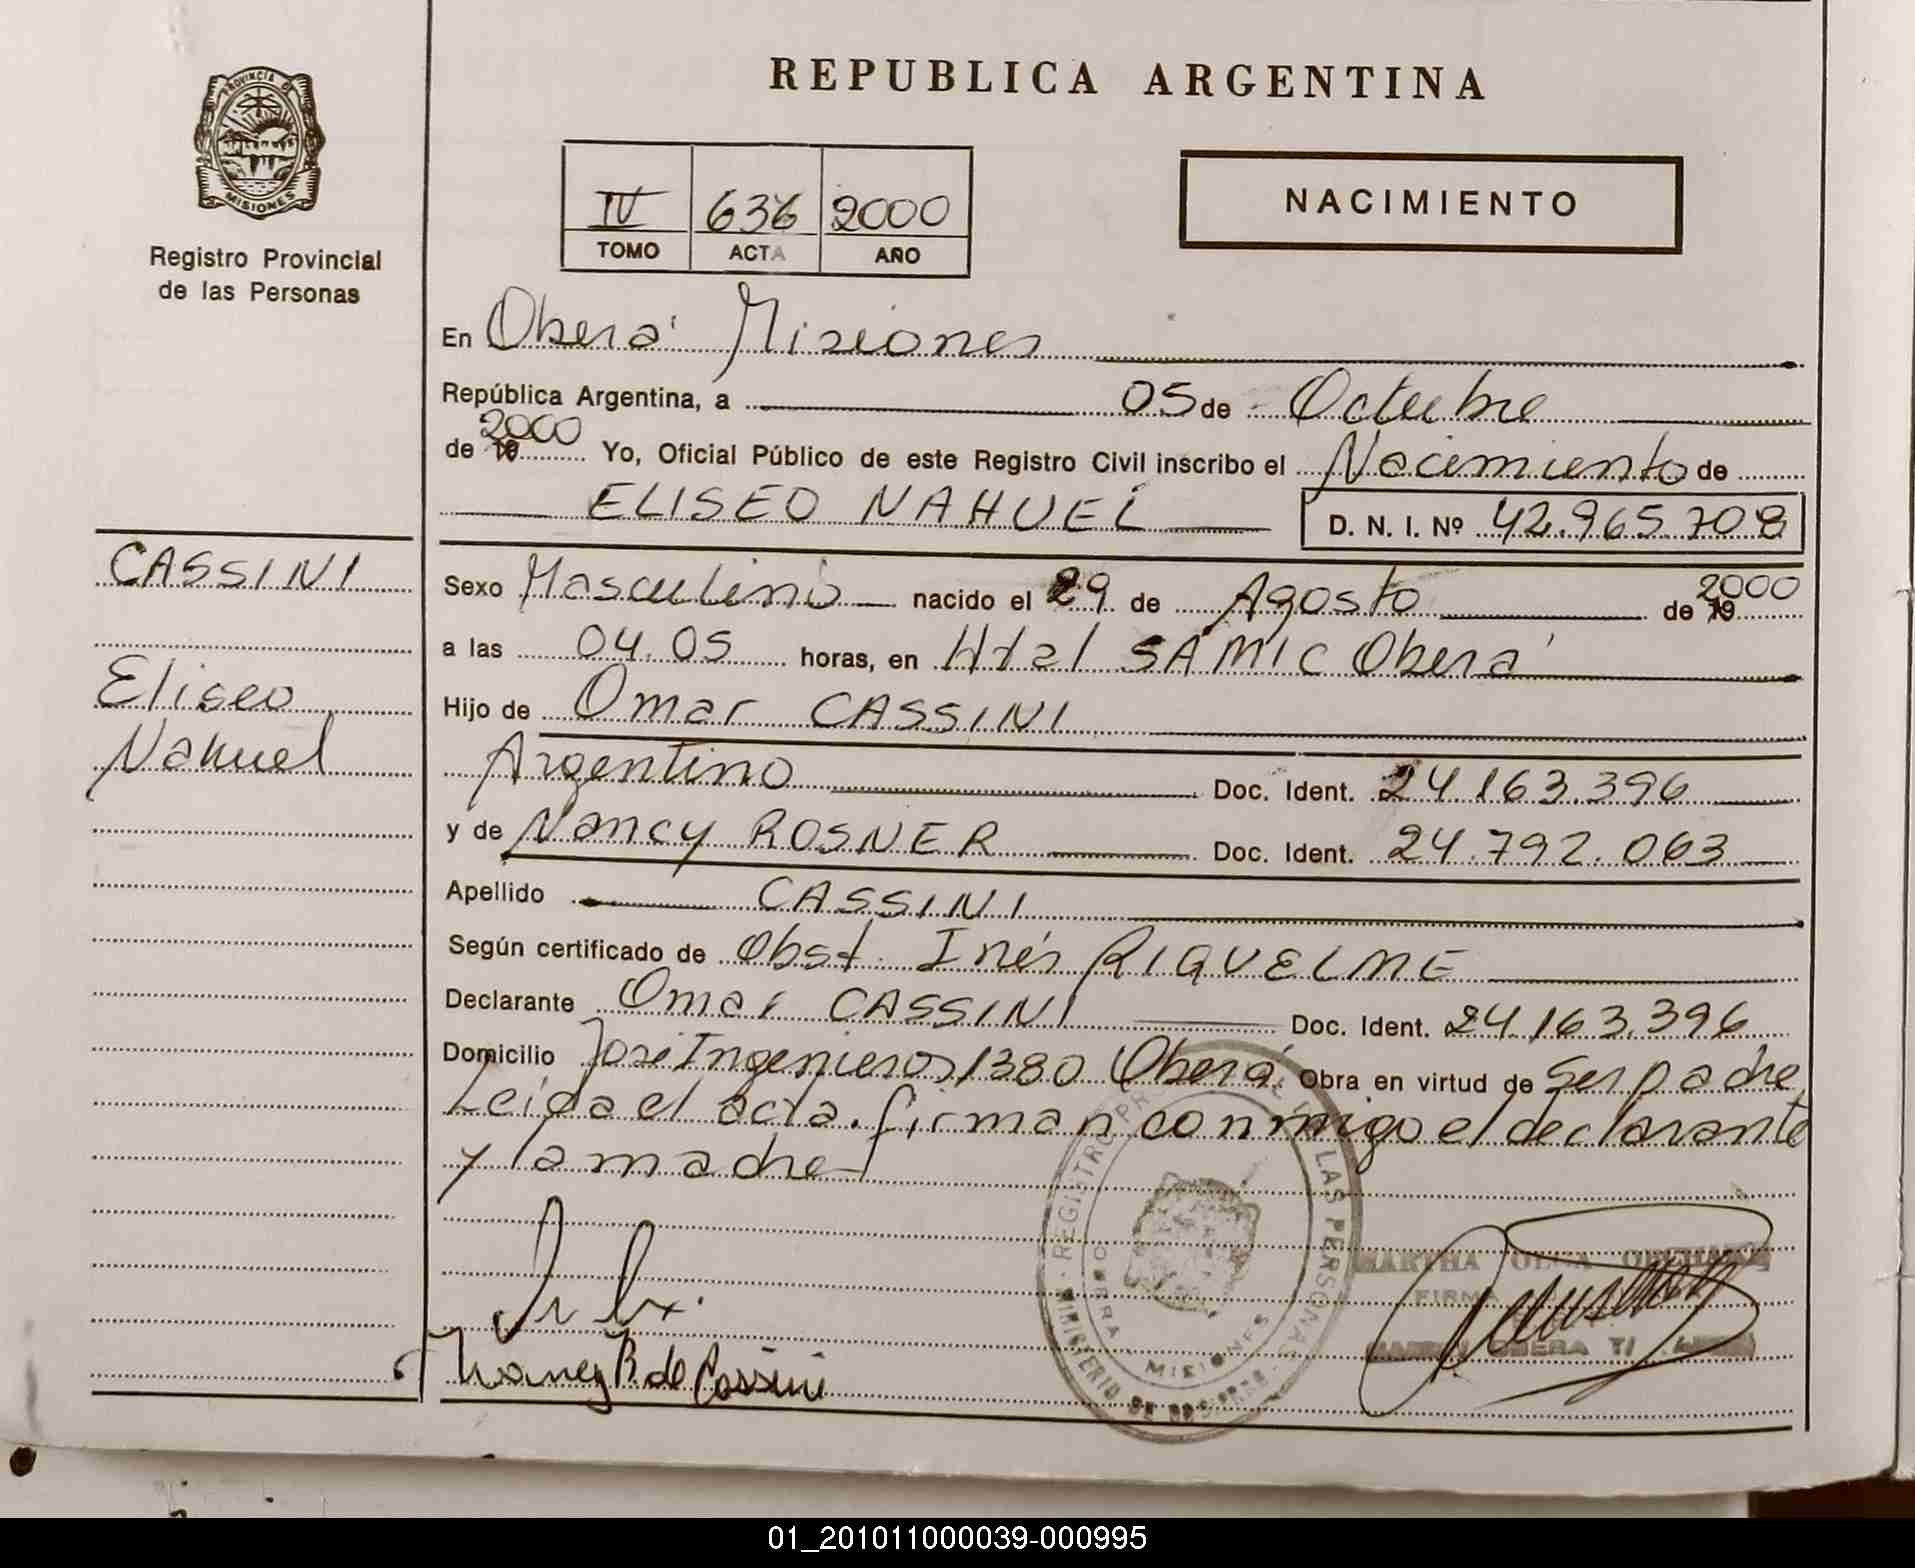 REPUBLICA ARGENTINA
PROVINCIA DE
MISIONES
Registro Provincial
de las Personas
IV 636 2000
TOMO ACTA AÑO
NACIMIENTO
En Oberá Misiones
República Argentina, a 05 de Octubre
de 2000 Yo, Oficial Público de este Registro Civil inscribo el Nacimiento de
ELISEO NAHUEL D. N. I. Nº 42.965.708
CASSINI
Eliseo
Nahuel
Sexo Masculino nacido el 29 de Agosto de 2000
a las 04.05 horas, en Htal SAMIC Oberá
Hijo de Omar CASSINI
Argentino Doc. Ident. 24.163.396
y de Nancy ROSNER Doc. Ident. 24.792.063
Apellido CASSINI
Según certificado de Obst. Inés RIQUELME
Declarante Omar CASSINI Doc. Ident. 24.163.396
Domicilio José Ingenieros 1380 Oberá Obra en virtud de ser padre
Leída el acta. firman conmigo el declarante
y la madre
REGISTRO LAS PERSONAS
MINISTERIO DE
MISIONES
MARTHA OLGA
FIRMA
Nancy R de Cassini
01_201011000039-000995